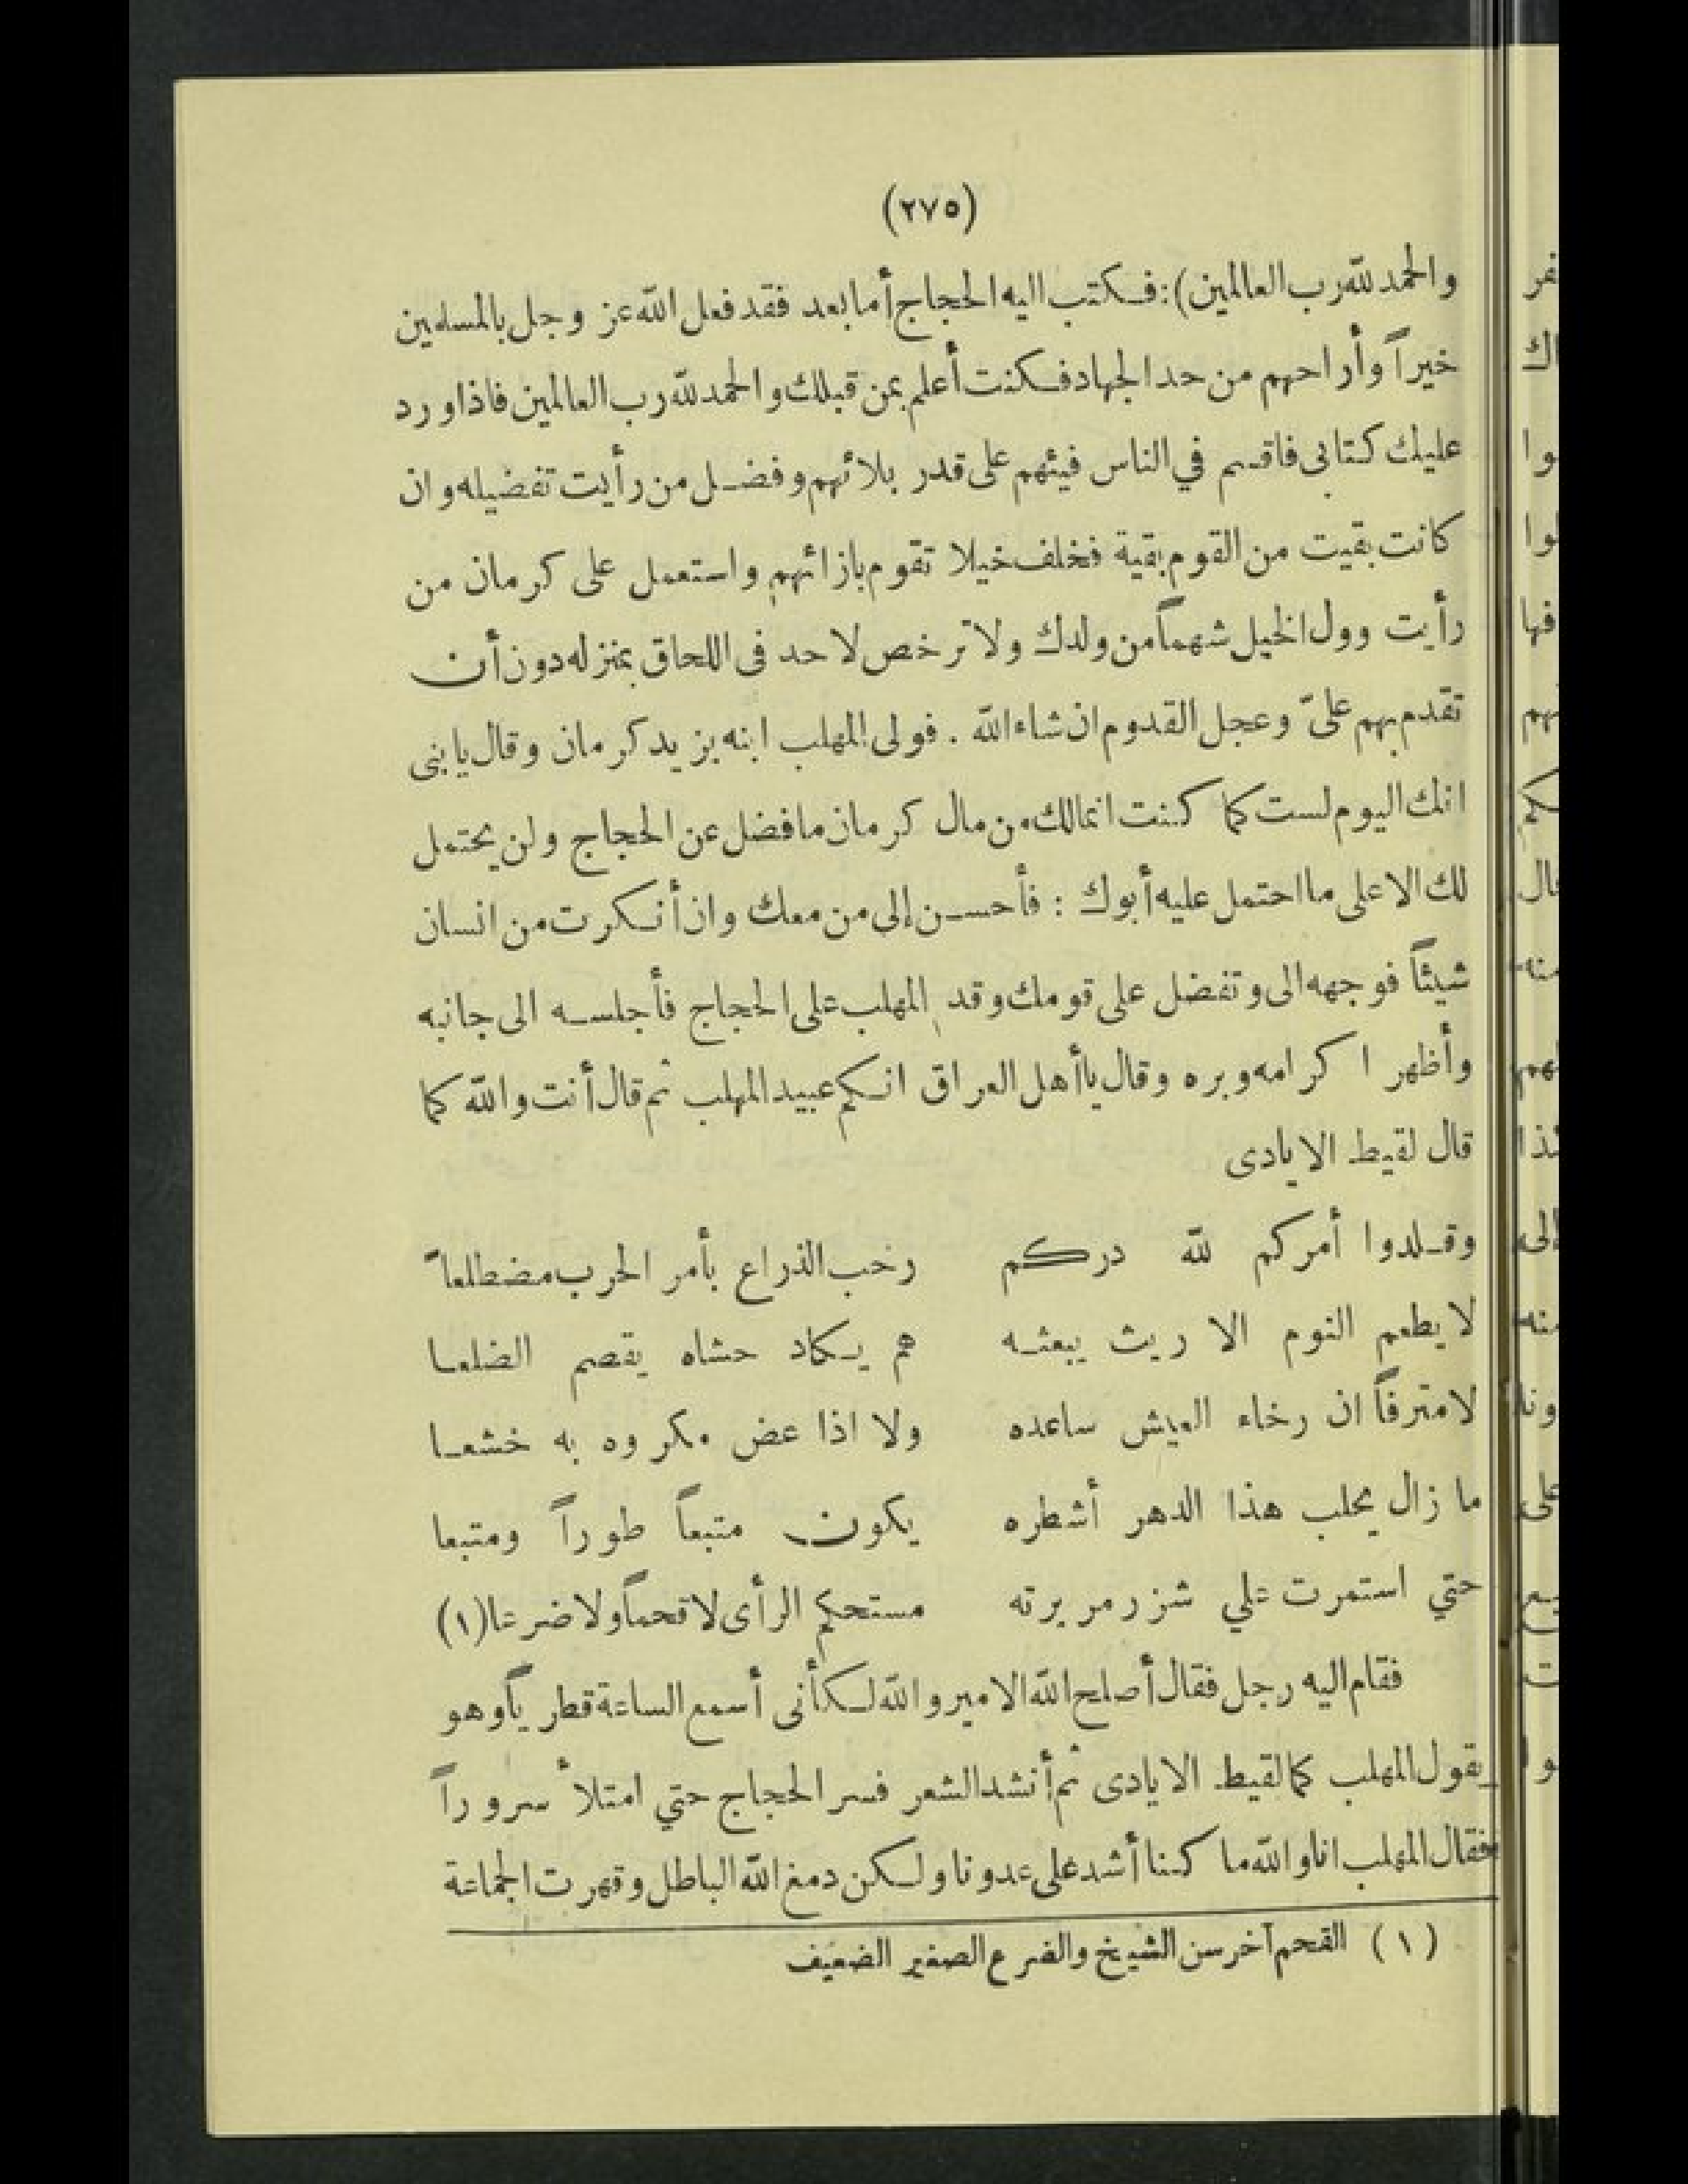 (٢٧٥)
والحمد لله رب العالمين): فكتب اليه الحجاج أما بعد فقد فعل الله عز وجل بالمسلمين
خيراً وأراحهم من حد الجهاد فكنت أعلم بمن قبلك والحمد لله رب العالمين فاذا ورد
عليك كتابى فاقسم في الناس فيئهم على قدر بلائهم وفضل من رأيت تفضيله وان
كانت بقيت من القوم بقية فخلف خيلا تقوم بازائهم واستعمل على كرمان من
رأيت وول الخيل شهماً من ولدك ولا ترخص لاحد فى اللحاق بمنزله دون أن
تقدم بهم علىّ وعجل القدوم ان شاء الله . فولى المهلب ابنه يزيد كرمان وقال يا بنى
انك اليوم لست كما كنت انما لك من مال كرمان ما فضل عن الحجاج ولن يحتمل
لك الا على ما احتمل عليه أبوك : فأحسن إلى من معك وان أنكرت من انسان
شيئاً فوجهه الى وتفضل على قومك وقد المهلب على الحجاج فأجلسه الى جانبه
وأظهر اكرامه وبره وقال يا أهل العراق انكم عبيد المهلب ثم قال أنت والله كما
قال لقيط الايادى
وقلدوا أمركم لله دركم رخب الذراع بأمر الحرب مضطلعاً
لا يطعم النوم الا ريث يبعثه هم يكاد حشاه يقصم الضلعا
لا مترفاً ان رخاء العيش ساعده ولا اذا عض مكروه به خشعا
ما زال يحلب هذا الدهر أشطره يكون متبعاً طوراً ومتبعا
حتي استمرت علي شزر مريرته مستحكم الرأى لا قحماً ولا ضرعا (١)
فقام اليه رجل فقال أصلح الله الامير والله لكأنى أسمع الساعة قطرياً وهو
يقول المهلب كما لقيط الايادى ثم أنشد الشعر فسر الحجاج حتي امتلأ سروراً
فقال المهلب انا والله ما كنا أشد على عدونا ولكن دمغ الله الباطل وقهرت الجماعة
(١) القحم آخر سن الشيخ والضرع الصغير الضعيف